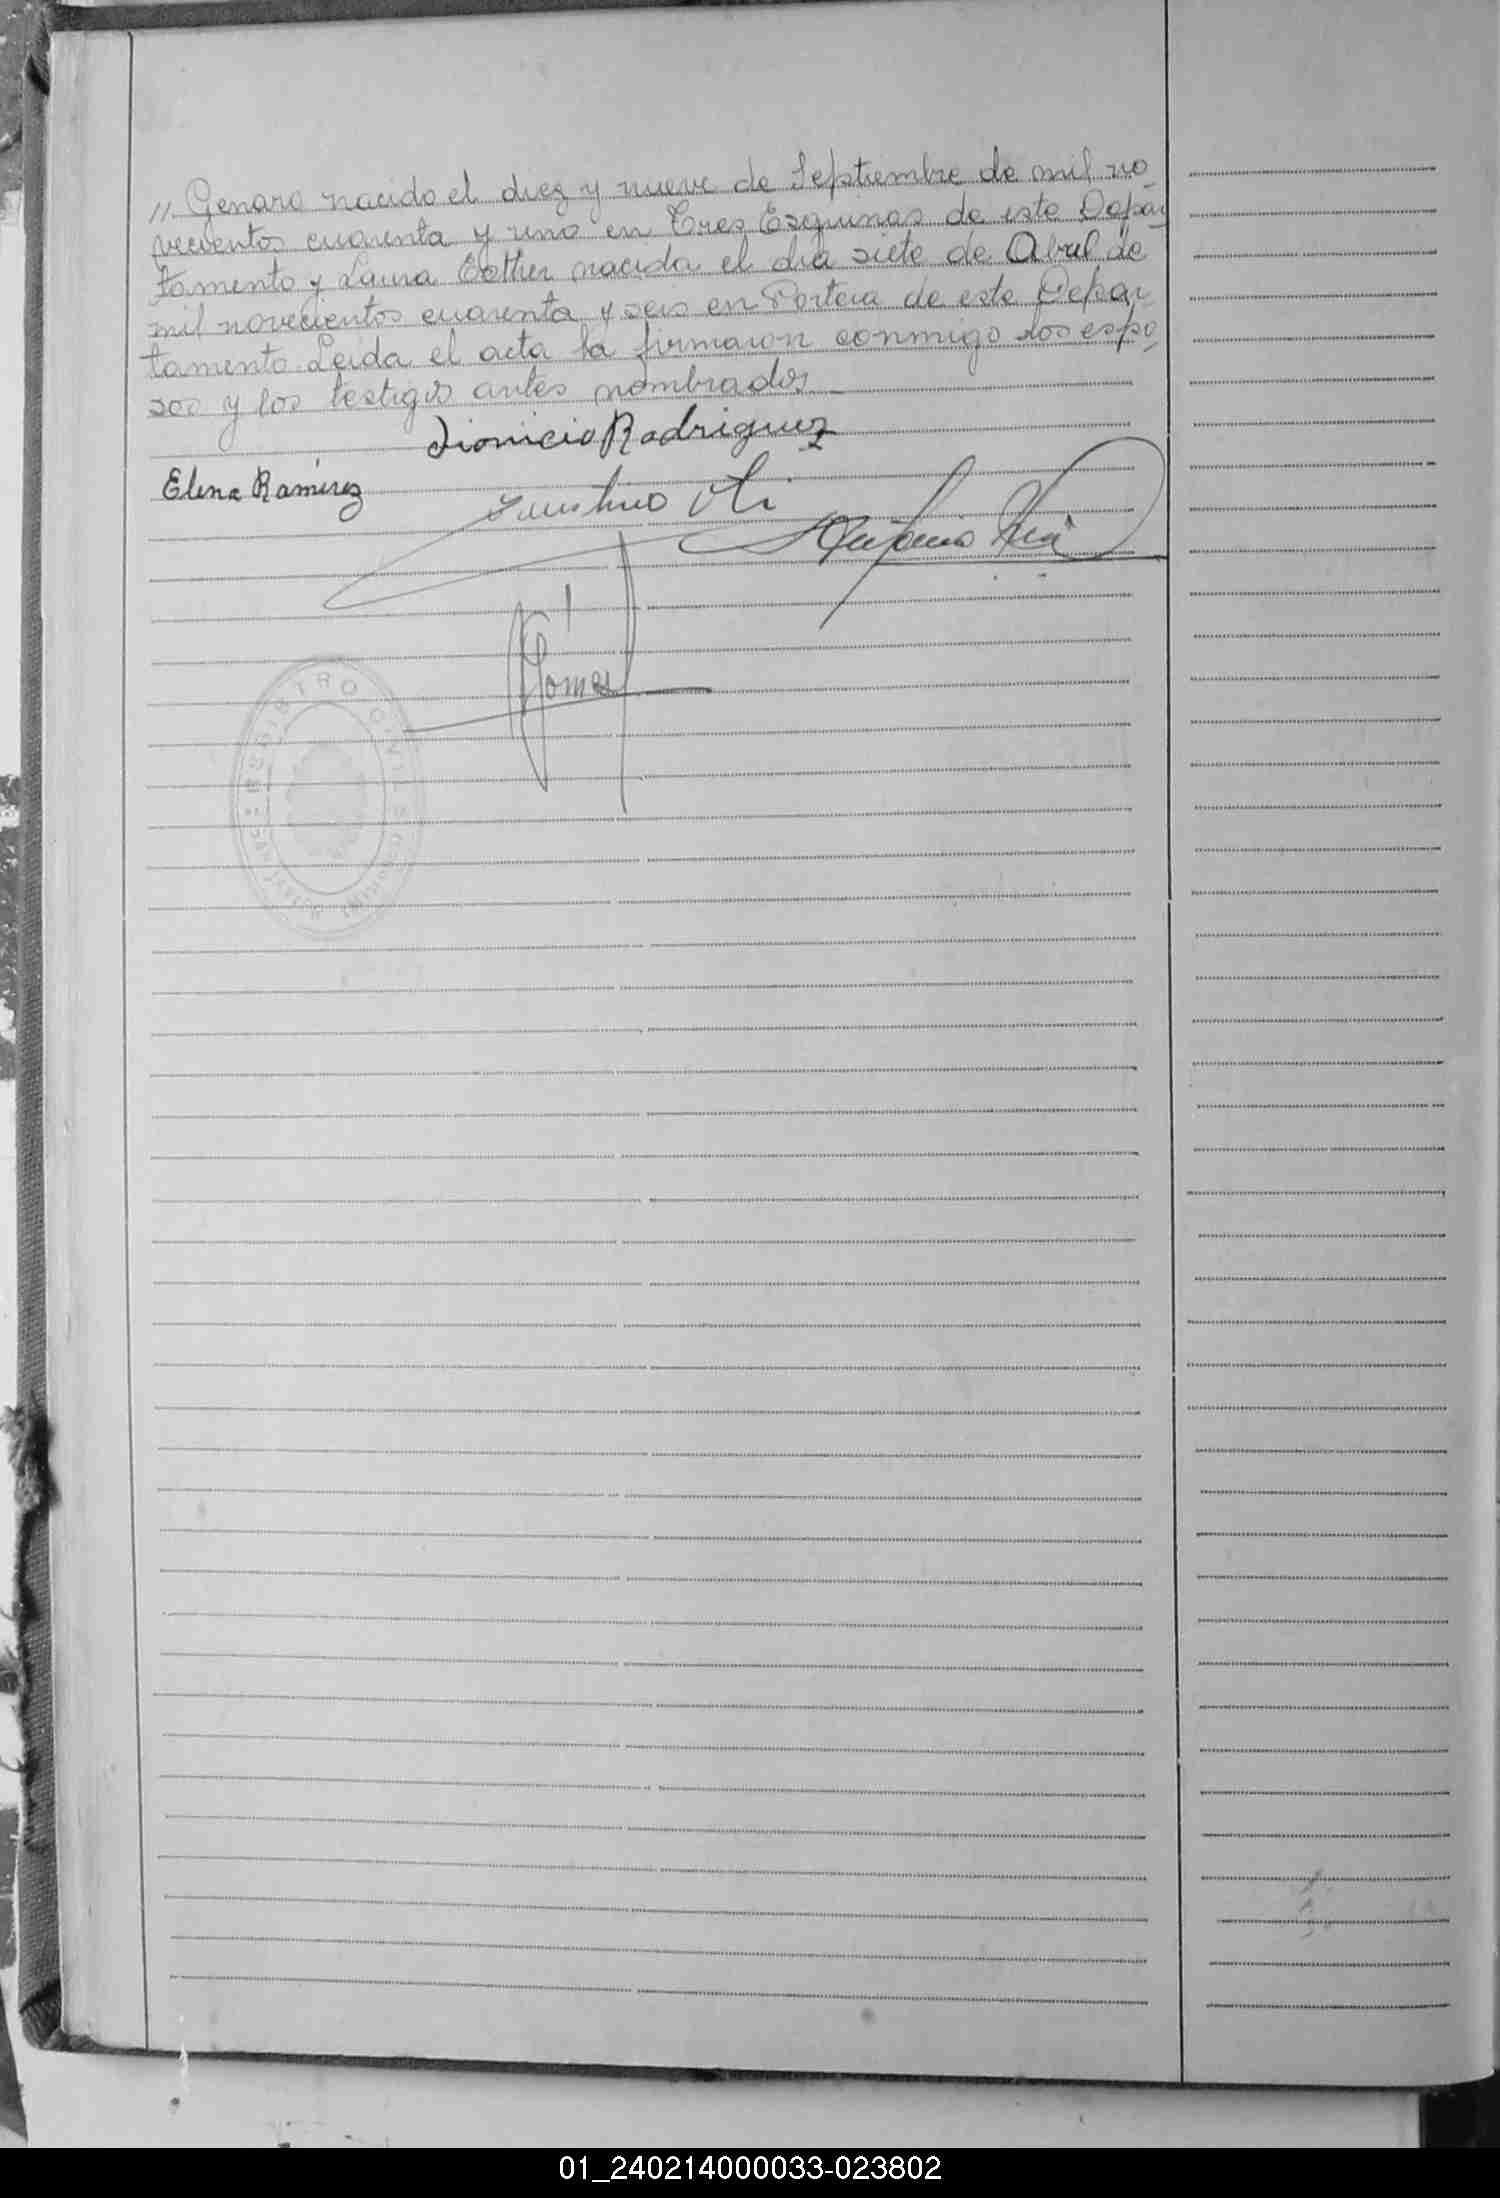 // Genaro nacido el diez y nueve de Septiembre de mil no_
vecientos cuarenta y uno en Tres Esquinas de este Depar
tamento y Laura Esther nacida el dia siete de Abril de
mil novecientos cuarenta y seis en Portera de este Depar_
tamento. Leida el acta la firmaron conmigo los espo_
sos y los testigos antes nombrados_
Dionicio Rodriguez
Elena Ramirez
Faustino
Antonio
Gomes
REGISTRO CIVIL
01_240214000033-023802